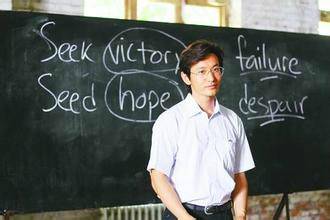 Seek victory failure
Seed hope despair